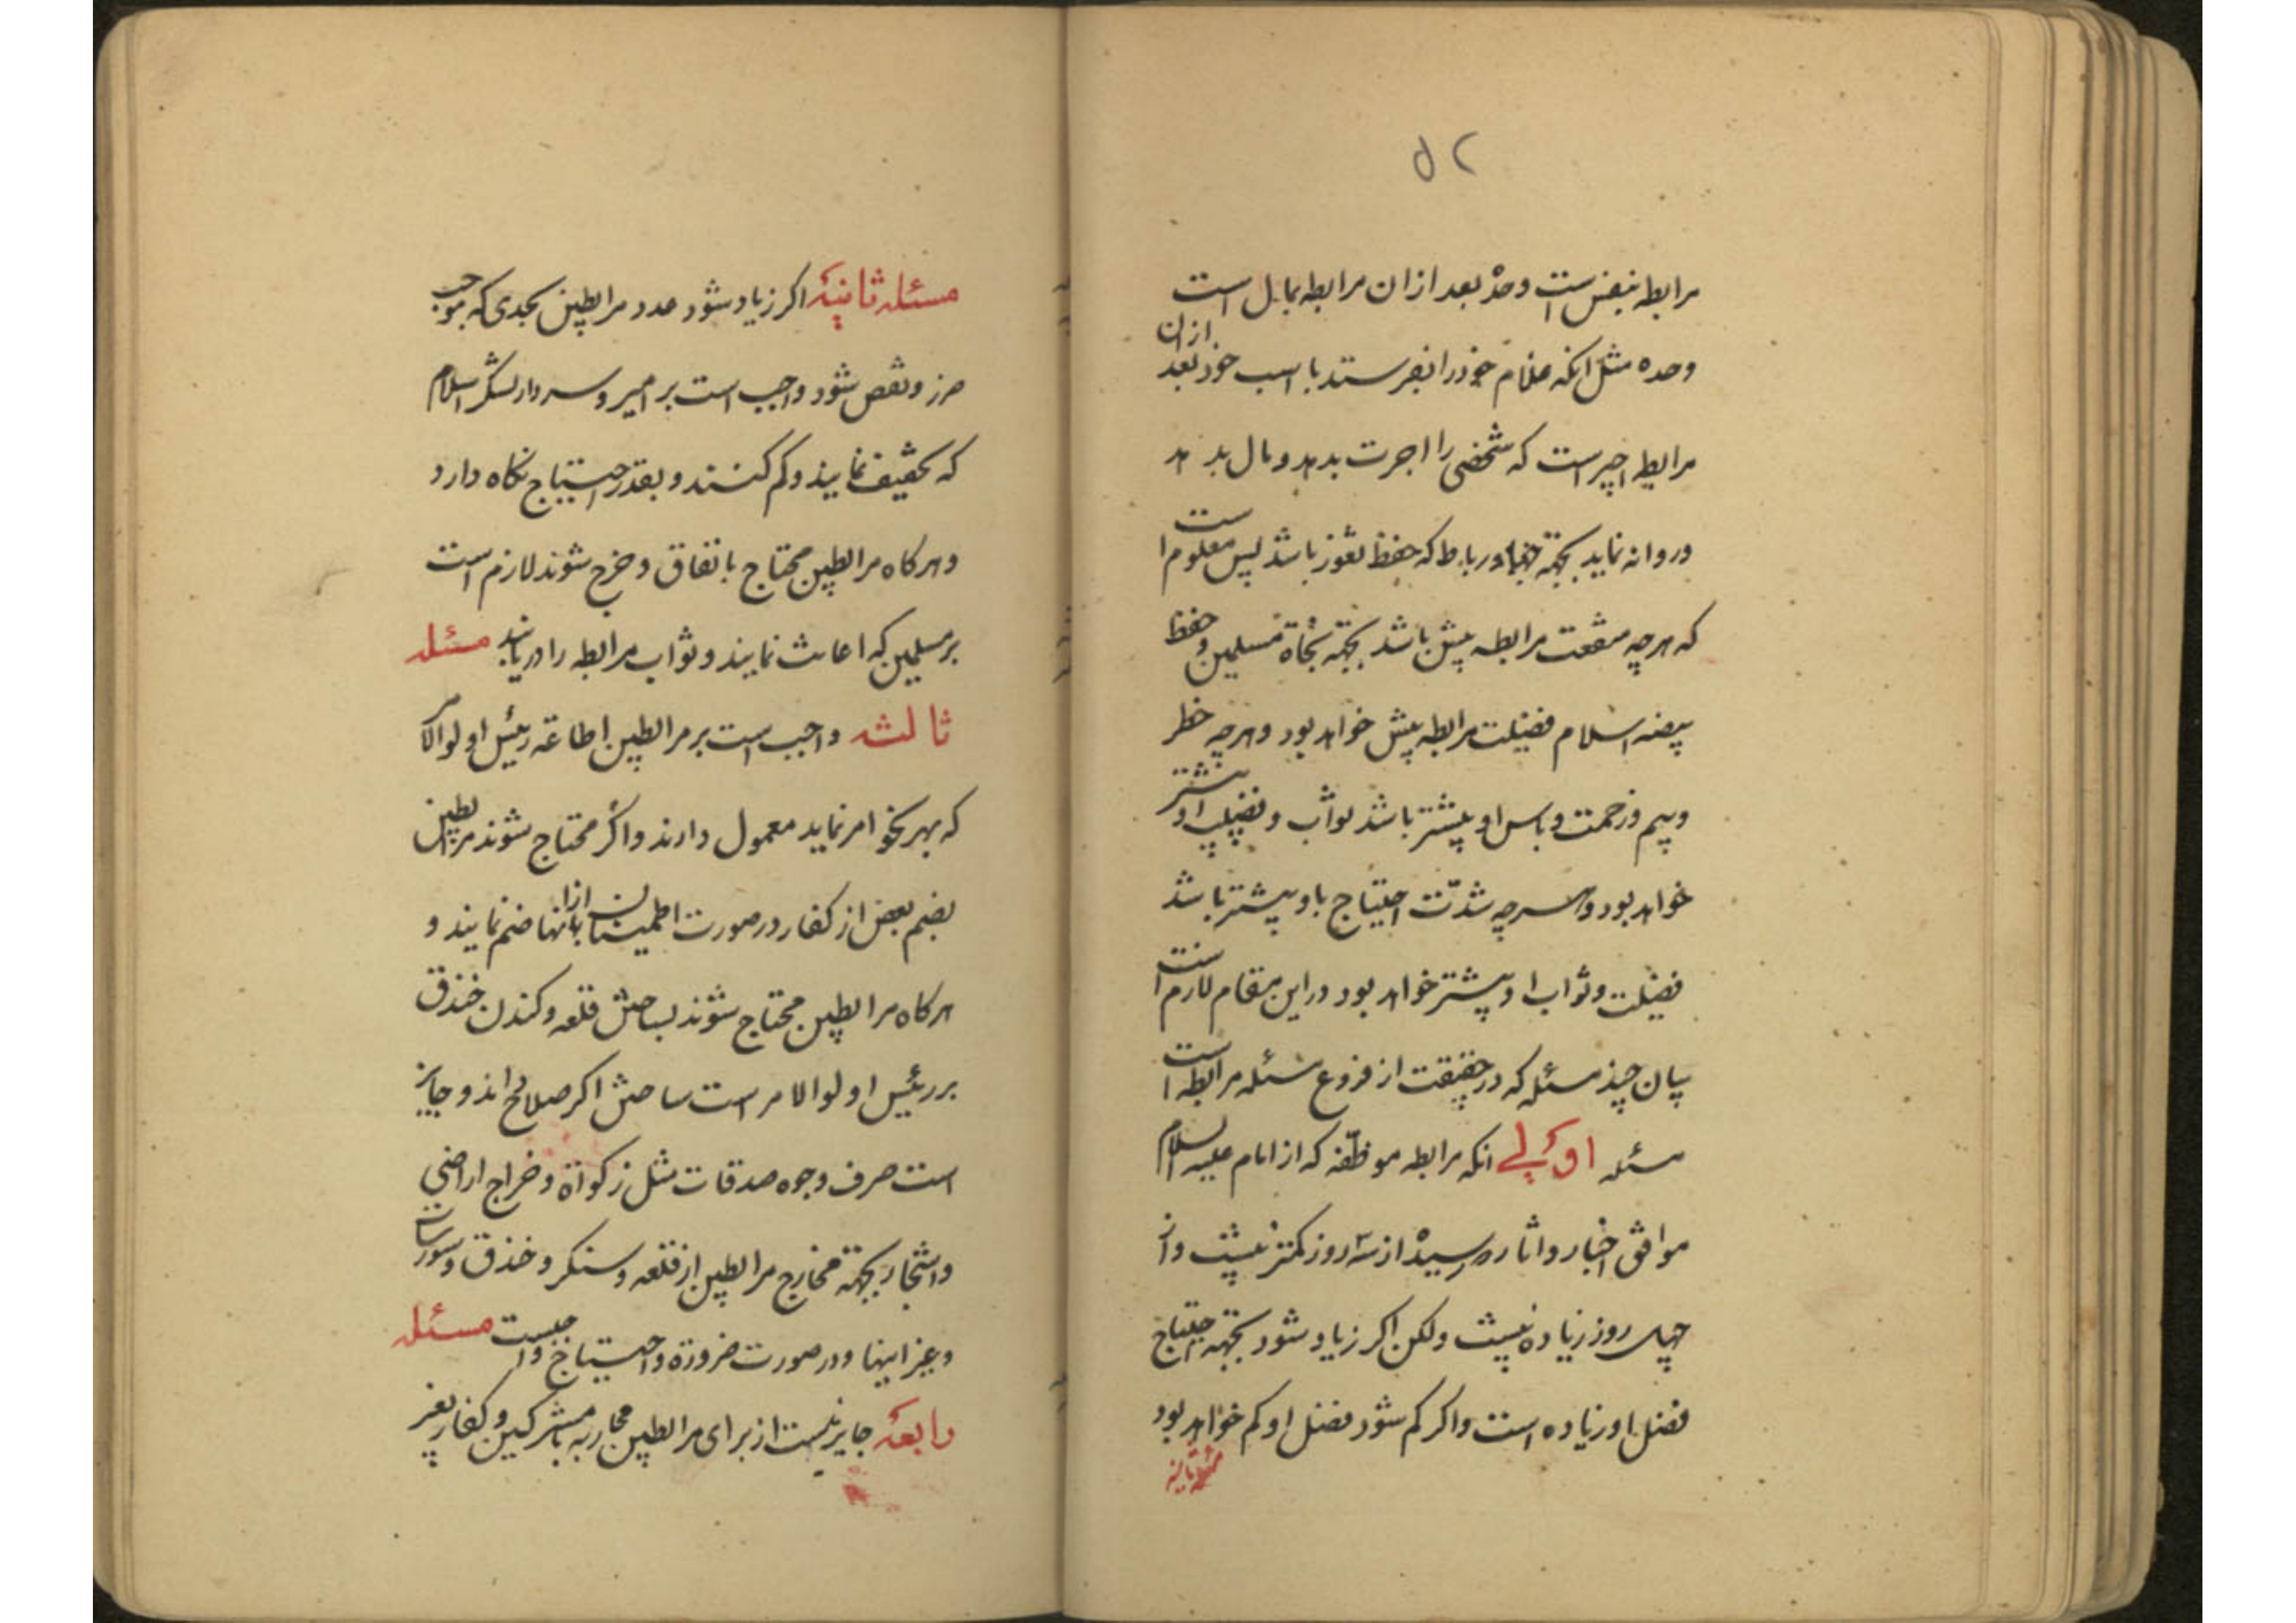 ۵۲
مرابطه بنفس است وحده بعد از ان مرابطه بمال است
وحده مثل انکه غلام خود را بفرستد با اسب خود بعد از ان
مرابطه اجیر است که شخصی را اجرت بدهد و مال بدهد
و روانه نماید بجهة جهاد و رباط که حفظ ثغور باشد پس معلوم است
که هر چه منفعت مرابطه بیش باشد بجهة نجاة مسلمین و حفظ
بیضه اسلام فضیلت مرابطه بیش خواهد بود و هر چه خطر
و بیم و زحمت و باس او بیشتر باشد ثواب و فضیلت او بیشتر
خواهد بود و هر چه شدّت احتیاج باو بیشتر باشد
فضیلت و ثواب او بیشتر خواهد بود در این مقام لازم است
بیان چند مسئله که در حقیقت از فروع مسئله مرابطه است
مسئله اولی انکه مرابطه موظّفه که از امام علیه السلام
موافق اخبار و اثار رسیده از سه روز کمتر نیست و از
چهل روز زیاده نیست ولکن اکر زیاد شود بجهة احتیاج
فضل او زیاده است و اکر کم شود فضل او کم خواهد بود
مسئله ثانیه
مسئله ثانیة اکر زیاد شود عدد مرابطین بحدی که موجب
ضرر و نقص شود واجب است بر امیر و سردار لشکر اسلام
که تخفیف نمایند و کم کنند و بقدر احتیاج نکاه دارد
و هر کاه مرابطین محتاج باتفاق و خرج شوند لازم است
بر مسلمین که اعانت نمایند و ثواب مرابطه را دریابند مسئله
ثالثه واجب است بر مرابطین اطاعه رئیس اولوالامر
که بهر نحو امر نماید معمول دارند و اکر محتاج شوند مرابطین
بضم بعض از کفار در صورت اطمینان از انها بانها ضم نمایند و
هر کاه مرابطین محتاج شوند بساختن قلعه و کندن خندق
بر رئیس اولوالامر است ساختن اکر صلاح داند و جایز
است صرف وجوه صدقات مثل زکواة و خراج اراضی
و اشجار بجهة مخارج مرابطین از قلعه و سنکر و خندق و سورسات
و غیر اینها و در صورت ضرورة و احتیاج واجبست مسئله
رابعة جایز نیست از برای مرابطین محاربه با مشرکین و کفار بغیر